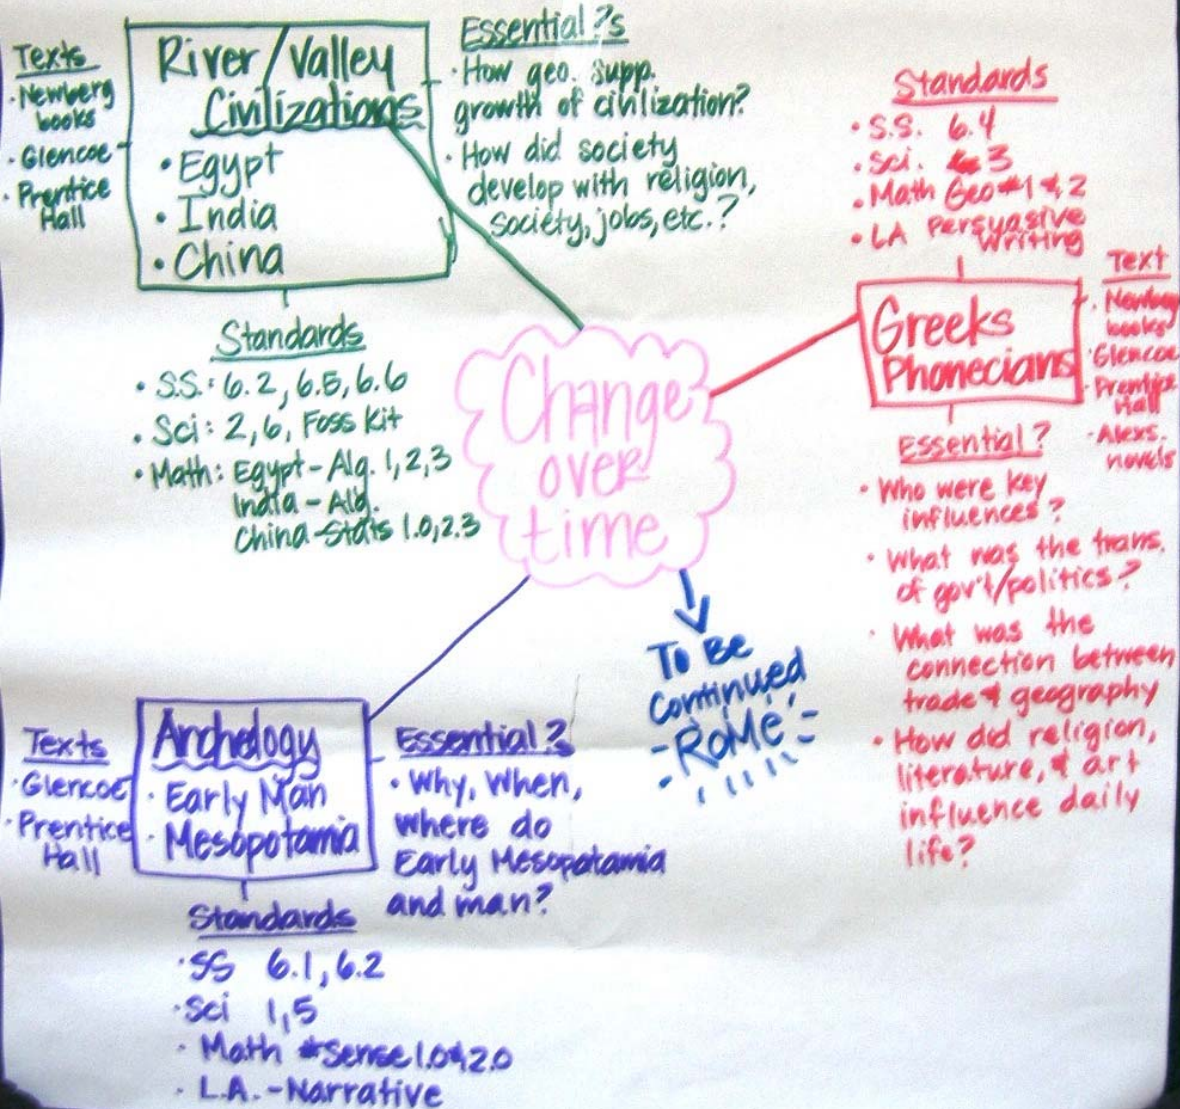 Texts
· Newberg
books
· Glencoe
· Prentice
Hall
River/Valley
Civilizations
· Egypt
· India
· China
Essential ?s
· How geo. supp.
growth of civilization?
· How did society
develop with religion,
society, jobs, etc.?
Standards
· S.S.: 6.2, 6.5, 6.6
· Sci: 2, 6, Foss Kit
· Math: Egypt - Alg. 1, 2, 3
India - Alg.
China - Stats 1.0, 2.3
Change
over
time
Standards
· S.S. 6.4
· Sci. 3
· Math Geo #1 & 2
· LA Persuasive
Writing
Greeks
Phonecians
Text
· Newberg
books
· Glencoe
· Prentice
Hall
· Alexs.
novels
Essential ?
· Who were key
influences?
· What was the trans.
of gov't/politics?
· What was the
connection between
trade & geography
· How did religion,
literature, & art
influence daily
life?
To Be
Continued
- RoMe -
Texts
· Glencoe
· Prentice
Hall
Archelogy
· Early Man
· Mesopotamia
Essential ?
· Why, When,
where do
Early Mesopotamia
and man?
Standards
· SS 6.1, 6.2
· Sci 1, 5
· Math # Sense 1.0 & 2.0
· L.A. - Narrative